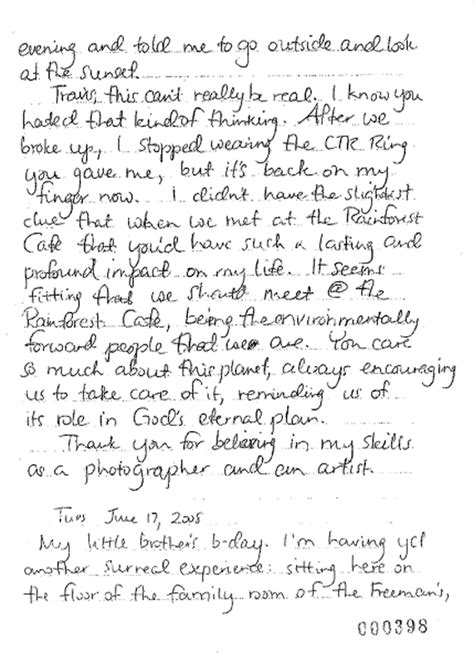 evening and told me to go outside and look
at the sunset.
Travis, this can't really be real. I know you
hated that kind of thinking. After we
broke up, I stopped wearing the CTR Ring
you gave me, but it's back on my
finger now. I didn't have the slightest
clue that when we met at the Rainforest
Cafe that you'd have such a lasting and
profound impact on my life. It seems
fitting that we should meet @ the
Rainforest Cafe, being the environmentally
forward people that we are. You care
so much about this planet, always encouraging
us to take care of it, reminding us of
its role in God's eternal plan.
Thank you for believing in my skills
as a photographer and an artist.
Tues June 17, 2008
My little brother's b-day. I'm having yet
another surreal experience: sitting here on
the floor of the family room of the Freeman's,
000398